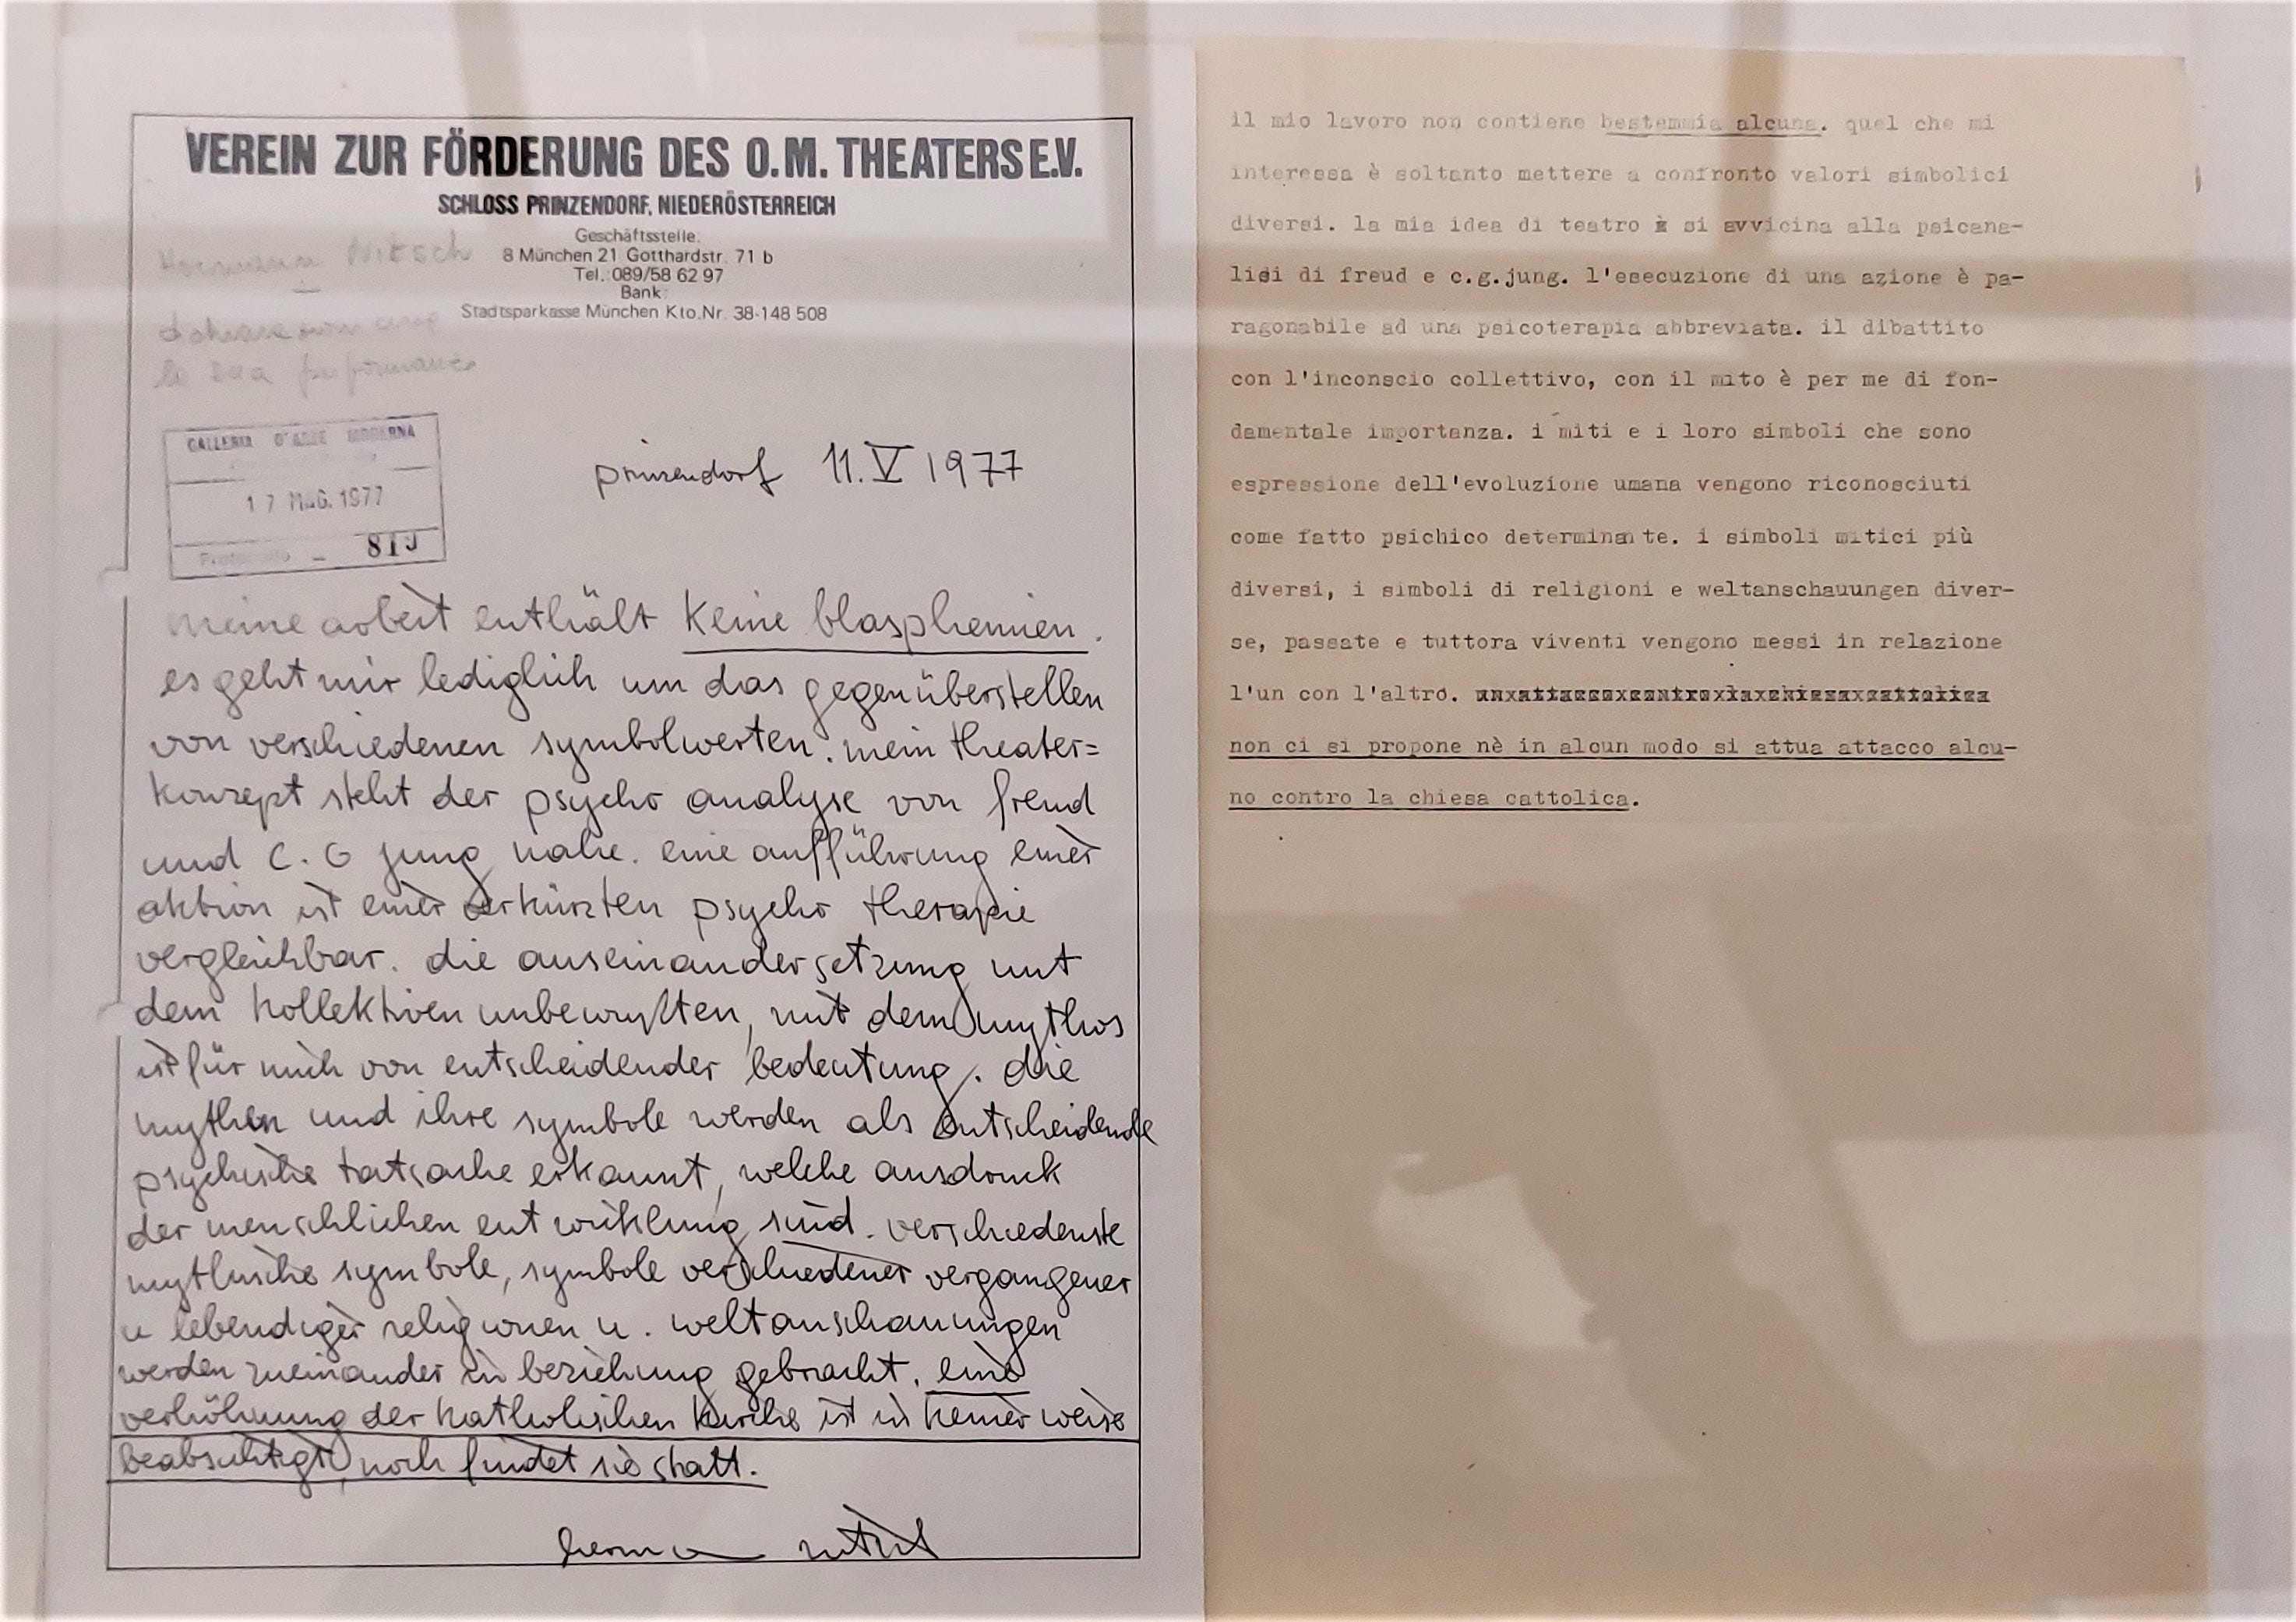 VEREIN ZUR FÖRDERUNG DES O.M. THEATERS E.V.
SCHLOSS PRINZENDORF, NIEDERÖSTERREICH
Geschäftsstelle:
8 München 21 Gotthardstr. 71 b
Tel.: 089/58 62 97
Bank:
Stadtsparkasse München Kto. Nr. 38-148 508
Hermann Nitsch
la sua performance
GALLERIA D'ARTE MODERNA
17 MAG. 1977
Protocollo
prinzendorf 11. V 1977
meine arbeit enthält keine blasphemien.
es geht mir lediglich um das gegenüberstellen
von verschiedenen symbolwerten. mein theater=
konzept steht der psycho analyse von freud
und C. G jung nahe. eine aufführung einer
aktion ist einer verkürzten psycho therapie
vergleichbar. die auseinandersetzung mit
dem kollektiven unbewußten, mit dem mythos
ist für mich von entscheidender bedeutung. die
mythen und ihre symbole werden als entscheidende
psychische tatsache erkannt, welche ausdruck
der menschlichen entwicklung sind. verschiedenste
mythische symbole, symbole verschiedener vergangener
u lebendiger religionen u. weltanschauungen
werden zueinander in beziehung gebracht. eine
verhöhnung der katholischen kirche ist in keiner weise
beabsichtigt, noch findet sie statt.
hermann nitsch
il mio lavoro non contiene bestemmia alcuna. quel che mi
interessa è soltanto mettere a confronto valori simbolici
diversi. la mia idea di teatro è si avvicina alla psicana-
lisi di freud e c.g.jung. l'esecuzione di una azione è pa-
ragonabile ad una psicoterapia abbreviata. il dibattito
con l'inconscio collettivo, con il mito è per me di fon-
damentale importanza. i miti e i loro simboli che sono
espressione dell'evoluzione umana vengono riconosciuti
come fatto psichico determinante. i simboli mitici più
diversi, i simboli di religioni e weltanschauungen diver-
se, passate e tuttora viventi vengono messi in relazione
l'un con l'altro. un attacco contro la chiesa cattolica
non ci si propone nè in alcun modo si attua attacco alcu-
no contro la chiesa cattolica.